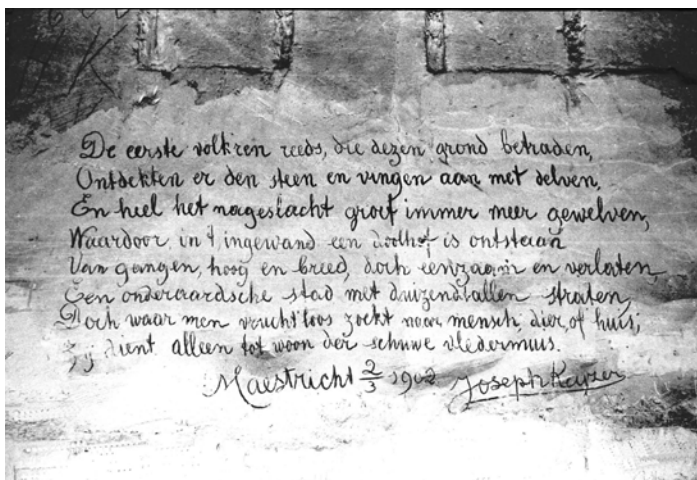 De eerste volk'ren reeds, die dezen grond betraden,
Ontdekten er den steen en vingen aan met delven,
En heel het nageslacht groef immer meer gewelven,
Waardoor in 't ingewand een doolhof is ontstaan
Van gangen, hoog en breed, doch eenzaam en verlaten,
Een onderaardsche stad met duizendtallen straten,
Doch waar men vruchtloos zoekt naar mensch, dier, of huis;
Zij dient alleen tot woon der schuwe vledermuis.
Maestricht 2/3 1902 Joseph Kayzer